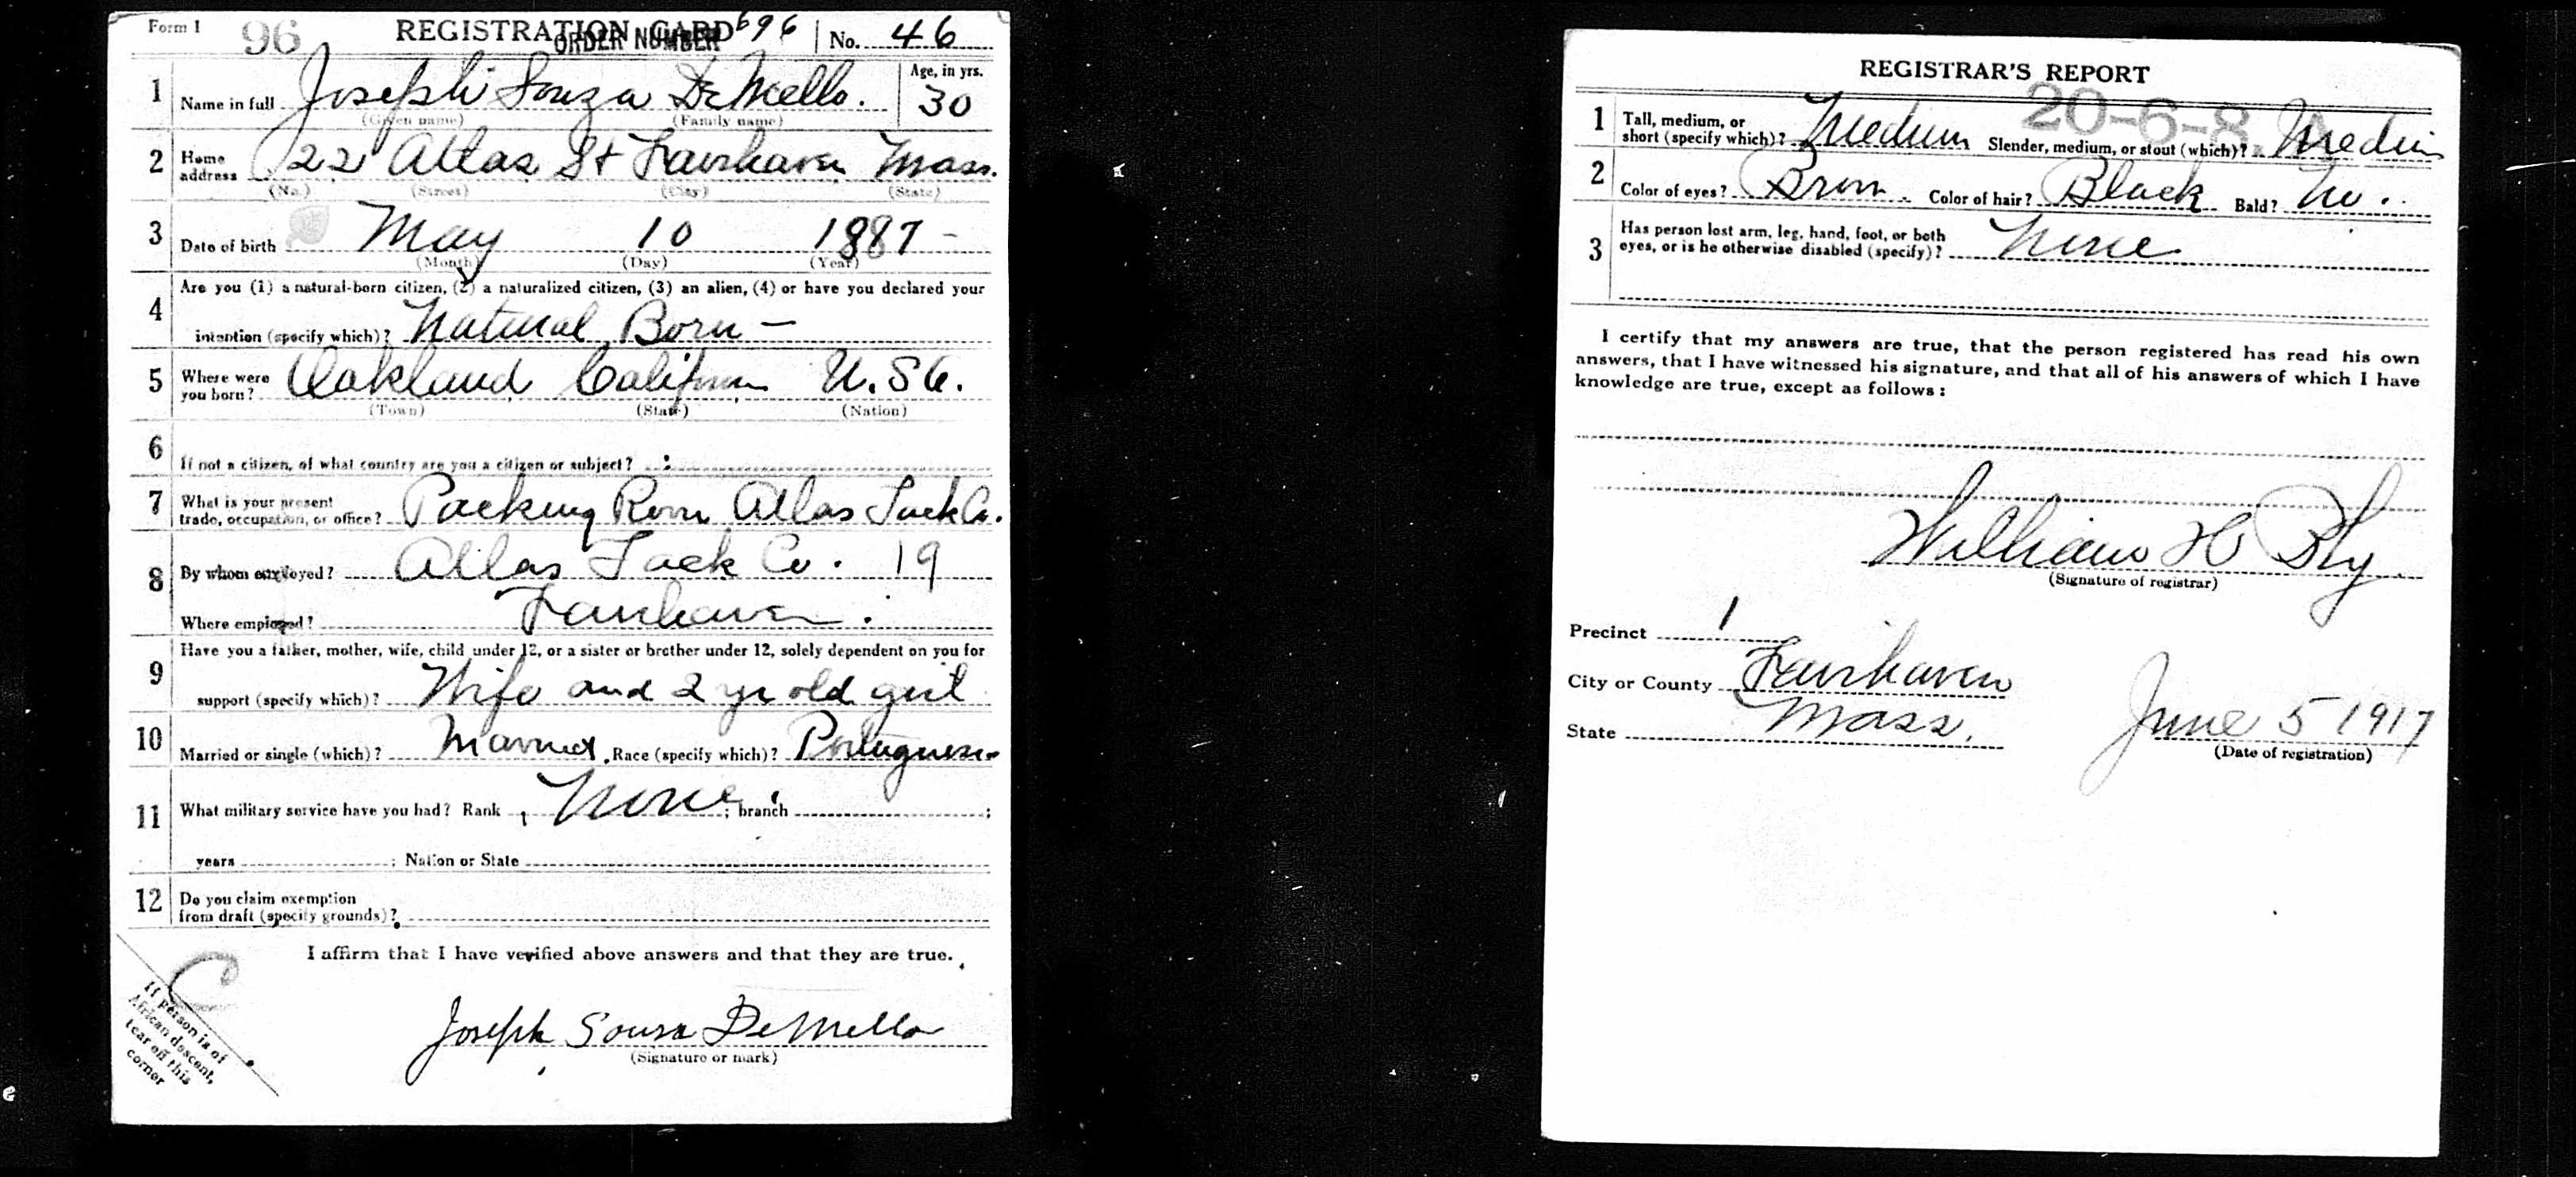 Form 1 96 REGISTRATION CARD ORDER NUMBER 696 No. 46
1 Name in full Joseph Souza DeMello. Age, in yrs. 30
(Given name) (Family name)
2 Home address 22 Atlas St Fairhaven Mass.
(No.) (Street) (City) (State)
3 Date of birth May 10 1887 -
(Month) (Day) (Year)
4 Are you (1) a natural-born citizen, (2) a naturalized citizen, (3) an alien, (4) or have you declared your
intention (specify which)? Natural Born —
5 Where were you born? Oakland California U.S.A.
(Town) (State) (Nation)
6 If not a citizen, of what country are you a citizen or subject?
7 What is your present trade, occupation, or office? Packing Room Atlas Tack Co.
8 By whom employed? Atlas Tack Co. 19
Where employed? Fairhaven.
9 Have you a father, mother, wife, child under 12, or a sister or brother under 12, solely dependent on you for
support (specify which)? Wife and 2 yr old girl
10 Married or single (which)? Married Race (specify which)? Portuguese
11 What military service have you had? Rank None; branch ;
years ; Nation or State
12 Do you claim exemption from draft (specify grounds)?
I affirm that I have verified above answers and that they are true.
Joseph Sousa DeMello
(Signature or mark)
If person is of
African descent,
tear off this
corner
C
REGISTRAR'S REPORT
20-6-8.
1 Tall, medium, or short (specify which)? Medium Slender, medium, or stout (which)? Medium
2 Color of eyes? Brown Color of hair? Black Bald? No.
3 Has person lost arm, leg, hand, foot, or both eyes, or is he otherwise disabled (specify)? None
I certify that my answers are true, that the person registered has read his own
answers, that I have witnessed his signature, and that all of his answers of which I have
knowledge are true, except as follows:
William H Bly
(Signature of registrar)
Precinct 1
City or County Fairhaven
State Mass. June 5 1917
(Date of registration)